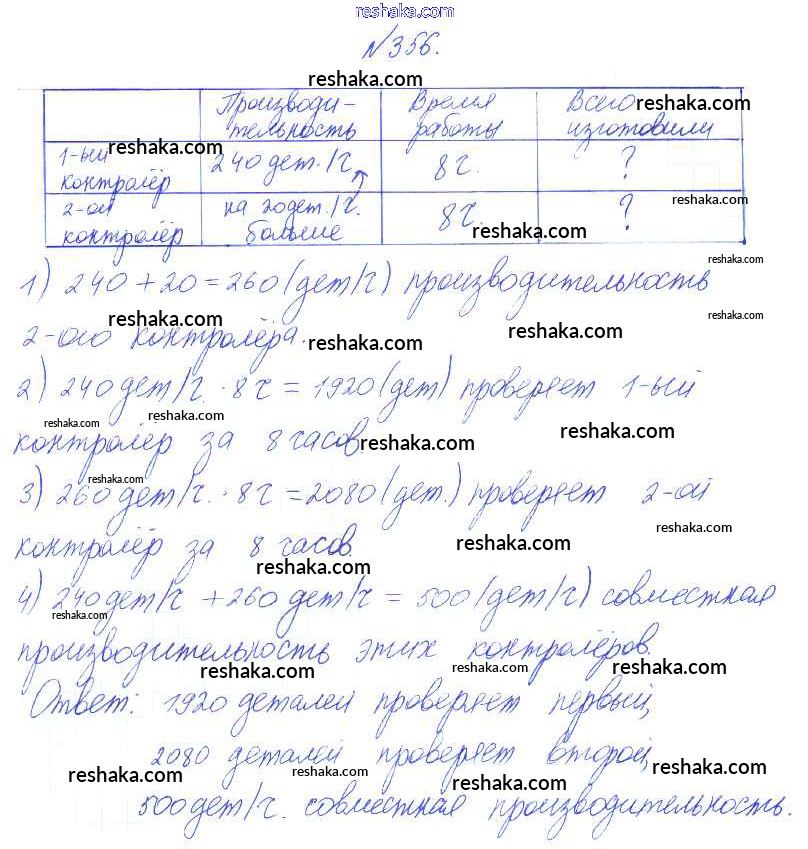 reshaka.com
№356.
reshaka.com
Производи- Время Всего reshaka.com
тельность работы изготовили
1-ый reshaka.com 240 дет./ч 8 ч. ?
контролёр
reshaka.com
2-ой на 20 дет./ч. 8 ч. reshaka.com ?
контролёр больше
reshaka.com
1) 240 + 20 = 260 (дет/ч) производительность
reshaka.com reshaka.com reshaka.com
2-ого контролёра. reshaka.com
2) 240 дет/ч. · 8 ч = 1920 (дет) проверяет 1-ый
reshaka.com reshaka.com reshaka.com
контролёр за 8 часов reshaka.com
reshaka.com
3) 260 дет/ч. · 8 ч = 2080 (дет.) проверяет 2-ой
reshaka.com
контролёр за 8 часов. reshaka.com
reshaka.com
4) 240 дет/ч + 260 дет/ч = 500 (дет/ч) совместная
reshaka.com
производительность этих контролёров.
reshaka.com reshaka.com reshaka.com
Ответ: 1920 деталей проверяет первый,
2080 деталей проверяет второй,
reshaka.com reshaka.com reshaka.com reshaka.com
500 дет/ч. совместная производительность.